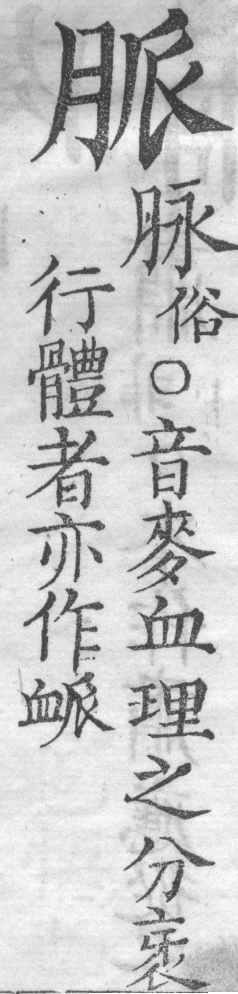 脈
脉俗○音麥血理之分衺
行體者亦作䘑